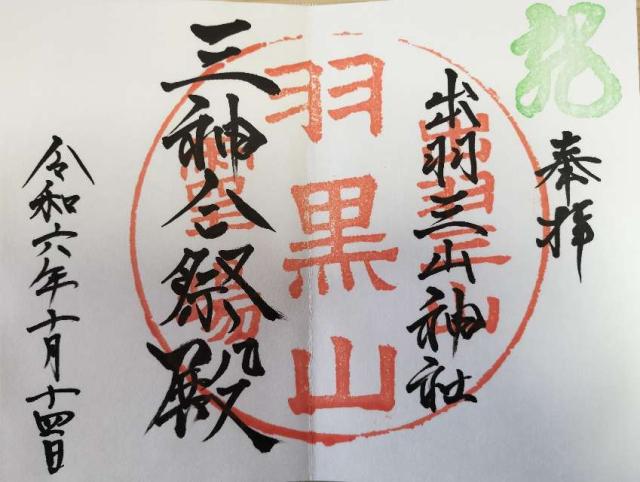 奉拝
出羽三山神社
羽黒山
三神合祭殿
令和六年十月十四日
出羽三山